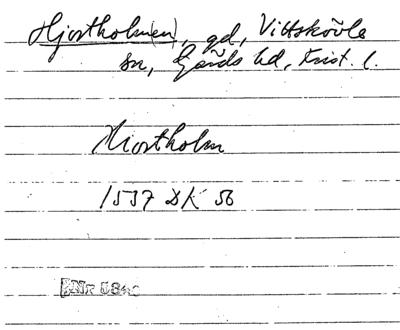 Hjortholm(en), gd, Vittskövle
sn, Gärds hd, Krist. l.
Hiortholm
1537 DK 56